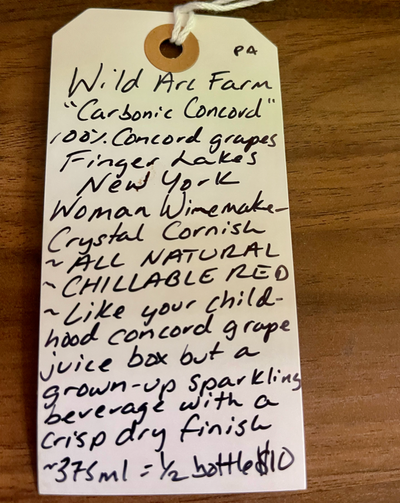 PA
Wild Arc Farm
"Carbonic Concord"
100% Concord grapes
Finger Lakes
New York
Woman Winemake-
Crystal Cornish
~ ALL NATURAL
~ CHILLABLE RED
~ Like your child-
hood concord grape
juice box but a
grown-up sparkling
beverage with a
crisp dry finish
~375ml = 1/2 bottle $10